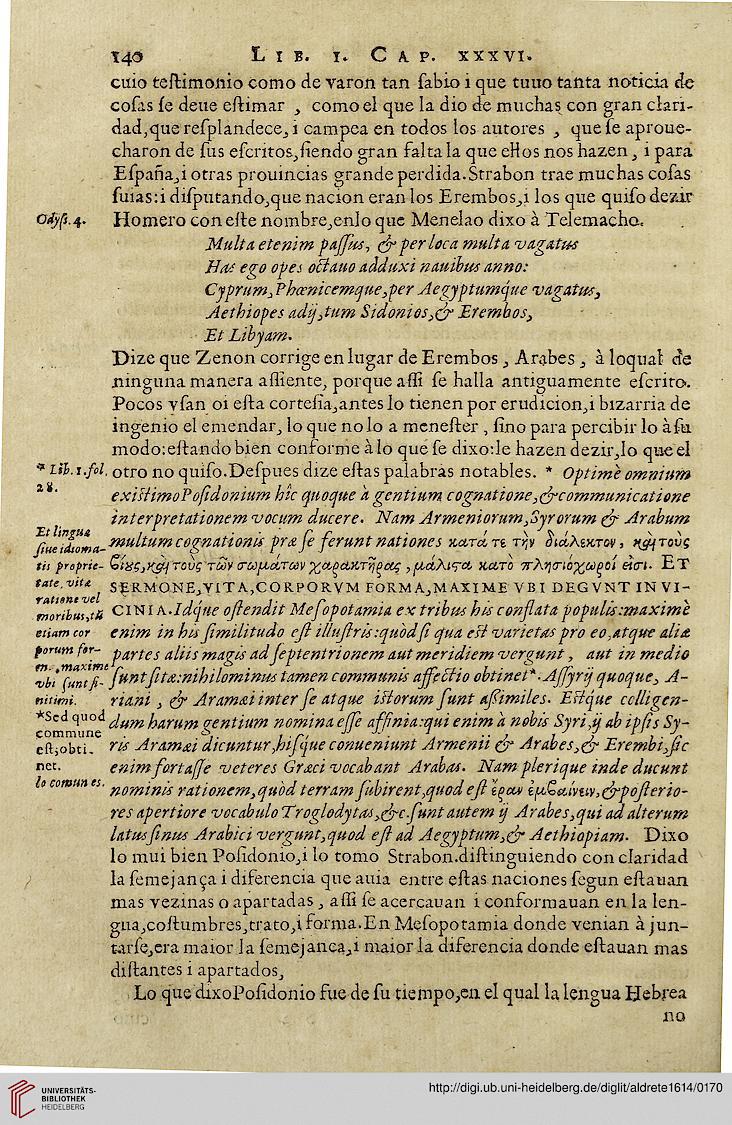 140 LIB. I. CAP. XXXVI.
cuio teſtimonio como de varon tan ſabio i que tuuo tanta noticia de
coſas ſe deue eſtimar , como el que la dio de muchas con gran clari-
dad,que reſplandece, i campea en todos los autores , que ſe aproue-
charon de ſus eſcritos,ſiendo gran falta la que ellos nos hazen , i para
Eſpaña,i otras prouincias grande perdida.Strabon trae muchas coſas
ſuias:i diſputando,que nacion eran los Erembos,i los que quiſo dezir
Odyſſ.4.
Homero con eſte nombre,enlo que Menelao dixo à Telemacho.
Multa etenim paſſus, & per loca multa vagatus
Has ego opes octauo adduxi nauibus anno:
Cyprum,Phœnicemque,per Aegyptumque vagatus,
Aethiopes adij,tum Sidonios,& Erembos,
Et Libyam.
Dize que Zenon corrige en lugar de Erembos , Arabes , à loqual de
ninguna manera aſſiente, porque aſſi ſe halla antiguamente eſcrito.
Pocos vſan oi eſta corteſia,antes lo tienen por erudicion,i bizarria de
ingenio el emendar, lo que no lo a meneſter , ſino para percibir lo à ſu
modo:eſtando bien conforme à lo que ſe dixo:le hazen dezir,lo que el
* Lib.1.fol.
28.
otro no quiſo.Deſpues dize eſtas palabras notables. * Optimè omnium
exiſtimo Poſidonium hîc quoque à gentium cognatione,& communicatione
interpretationem vocum ducere. Nam Armeniorum,Syrorum & Arabum
Et lingua
ſiue idioma-
tis proprie-
tate, vitæ
ratione vel
moribus,tũ
etiam cor
porum for-
m. , maxime
vbi ſunt fi-
nitimi.
multum cognationis præ ſe ferunt nationes κατά τε τὴν διάλεκτον , καὶ τοὺς
βίες,καὶ τοὺς τῶν σωμάτων χαρακτῆρας ,μάλιστα κατὸ πλησιόχωροί εἰσι. ET
SERMONE,VITA,CORPORVM FORMA,MAXIME VBI DEGVNT IN VI-
CINIA.Idque oſtendit Meſopotamia ex tribus his conflata populis:maximè
enim in his ſimilitudo eſt illuſtris:quòd ſi qua eſt varietas pro eo,atque aliæ
partes aliis magis ad ſeptentrionem aut meridiem vergunt , aut in medio
ſunt ſitæ:nihilominus tamen communis affectio obtinet*.Aſſyrij quoque, A-
riani , & Aramæi inter ſe atque iſtorum ſunt aſſimiles. Eſtque colligen-
*Sed quod
commune
eſt,obti-
net.
lo comun es.
dum harum gentium nomina eſſe affinia:qui enim à nobis Syri,ij ab ipſis Sy-
ris Aramæi dicuntur,hiſque conueniunt Armenii & Arabes,& Erembi,ſic
enim fortaſſe veteres Græci vocabant Arabas. Nam plerique inde ducunt
nominis rationem,quòd terram ſubirent,quod eſt ἔραν ἐμβαίνειν,& poſterio-
res apertiore vocabulo Troglodytas,&c.ſunt autem ij Arabes,qui ad alterum
latus ſinus Arabici vergunt,quod eſt ad Aegyptum,& Aethiopiam. Dixo
lo mui bien Poſidonio,i lo tomo Strabon.diſtinguiendo con claridad
la ſemejança i diferencia que auia entre eſtas naciones ſegun eſtauan
mas vezinas o apartadas , aſſi ſe acercauan i conformauan en la len-
gua,coſtumbres,trato,i forma.En Meſopotamia donde venian à jun-
tarſe,era maior la ſemejanca,i maior la diferencia donde eſtauan mas
diſtantes i apartados,
Lo que dixo Poſidonio fue de ſu tiempo,en el qual la lengua Hebrea
no
UNIVERSITÄTS-
BIBLIOTHEK
HEIDELBERG
http://digi.ub.uni-heidelberg.de/diglit/aldrete1614/0170